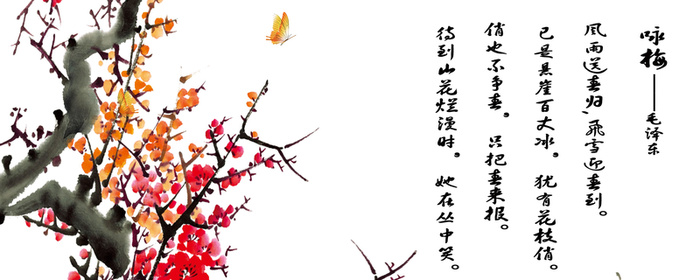 咏梅——毛泽东
风雨送春归,飛雪迎春到。
已是悬崖百丈冰。犹有花枝俏。
俏也不争春。只把春来报。
待到山花烂漫时。她在丛中笑。